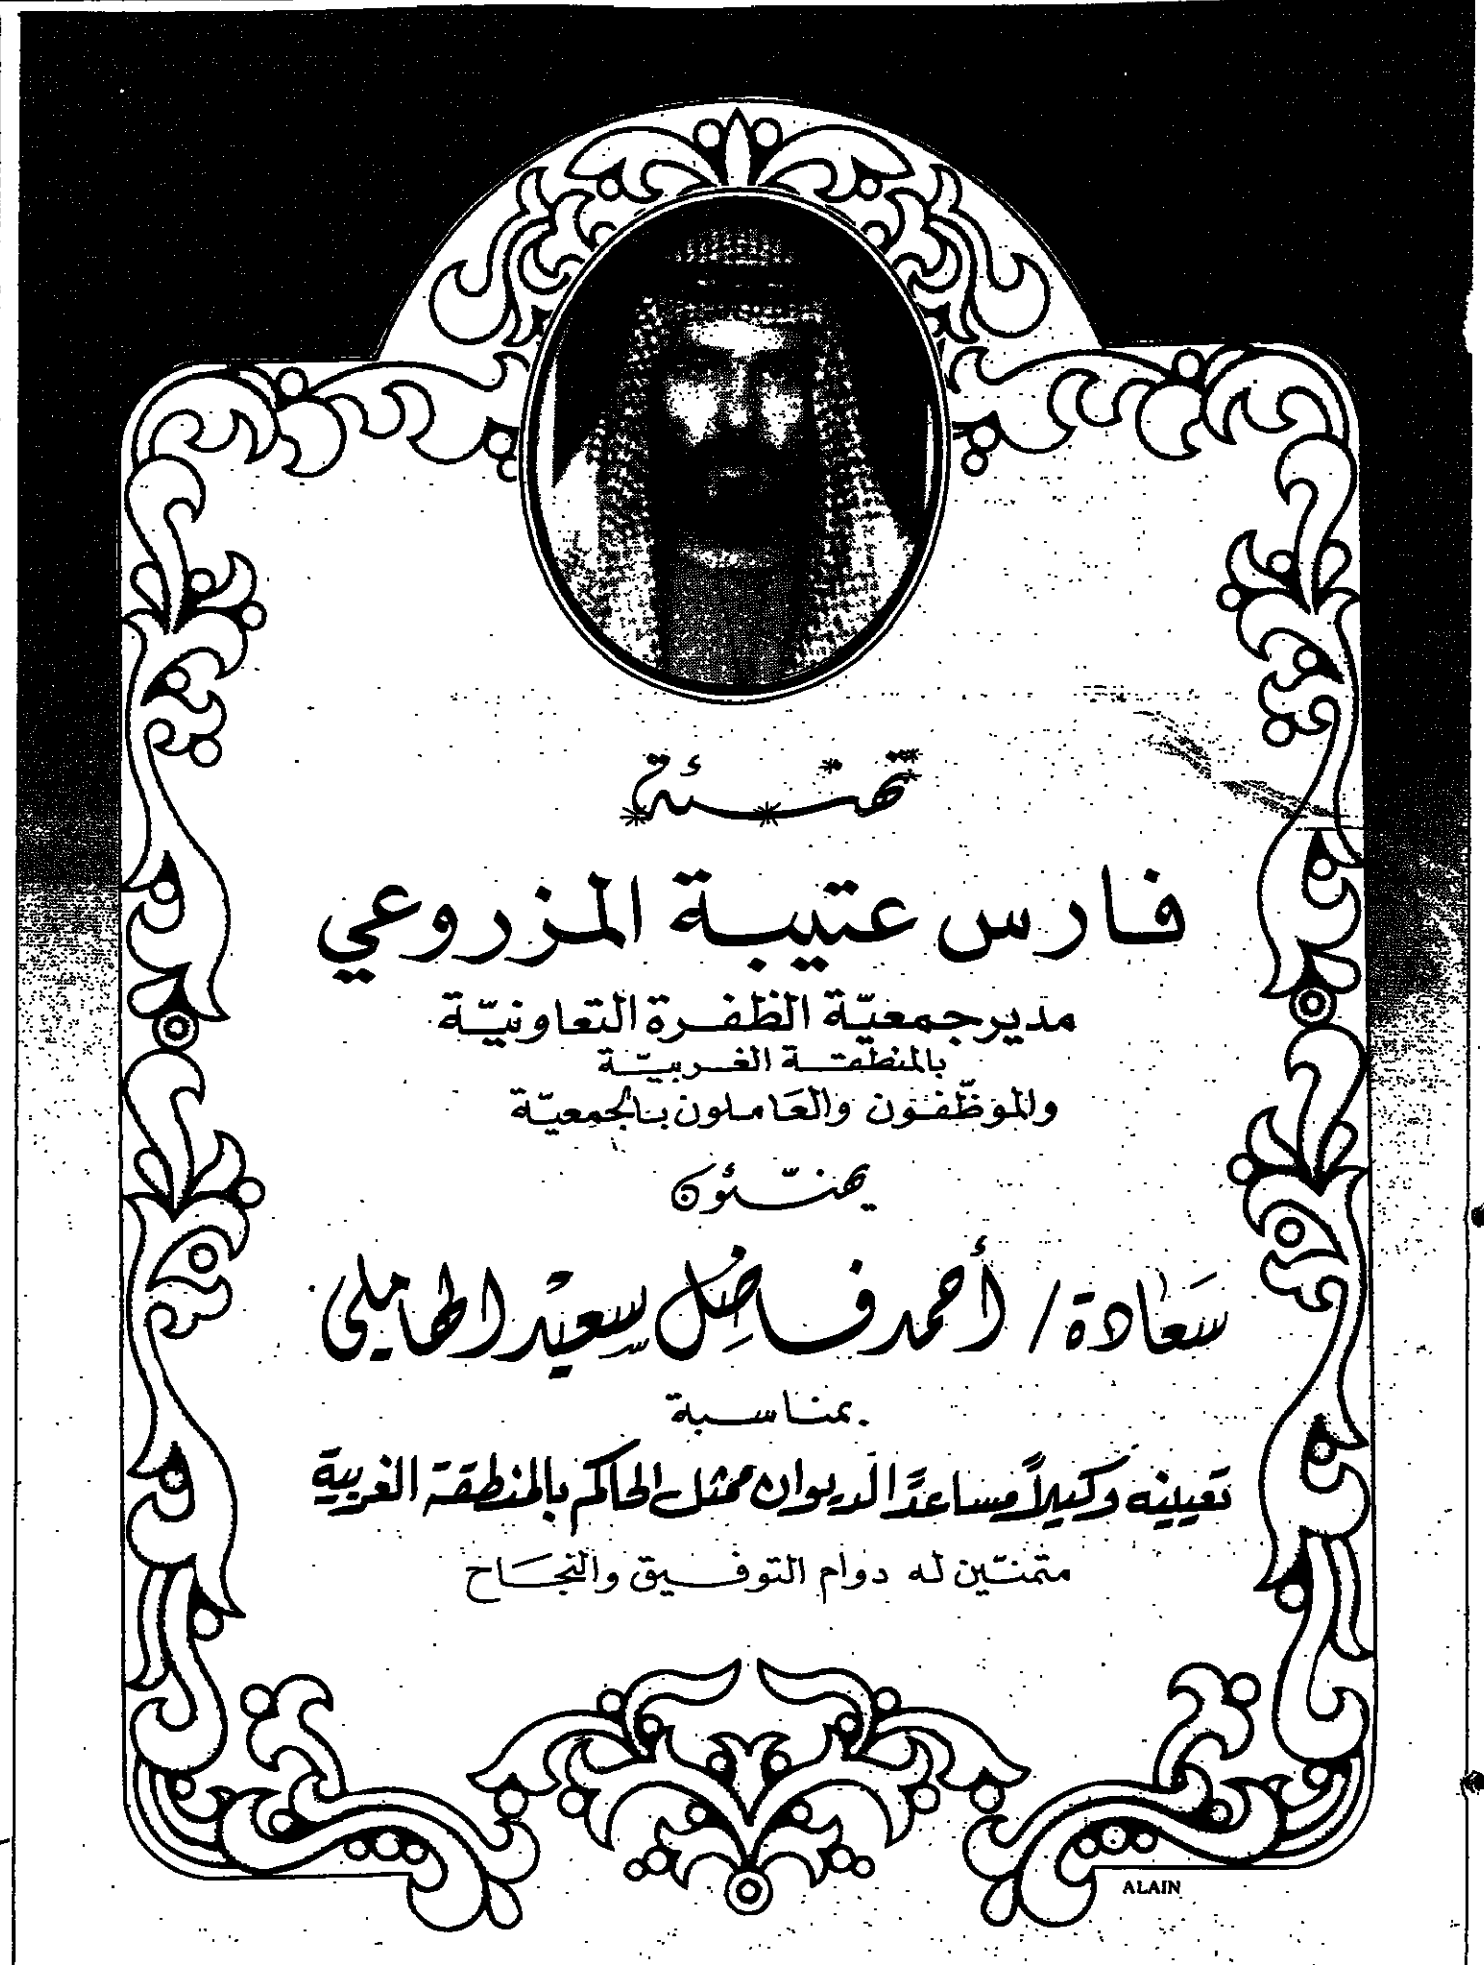 تهنئة
فارس عتيبة المزروعي
مدير جمعيّة الظفرة التعاونيّة
بالمنطقة الغربيّة
والموظّفون والعَاملون بالجمعيّة
يهنّئون
سَعادة / أحمد فاضل سعيد الهاملي
بمناسبة
تعيينه وكيلاً مساعدًا لديوان ممثل الحاكم بالمنطقة الغربية
متمنّين له دوام التوفيق والنجَاح
ALAIN